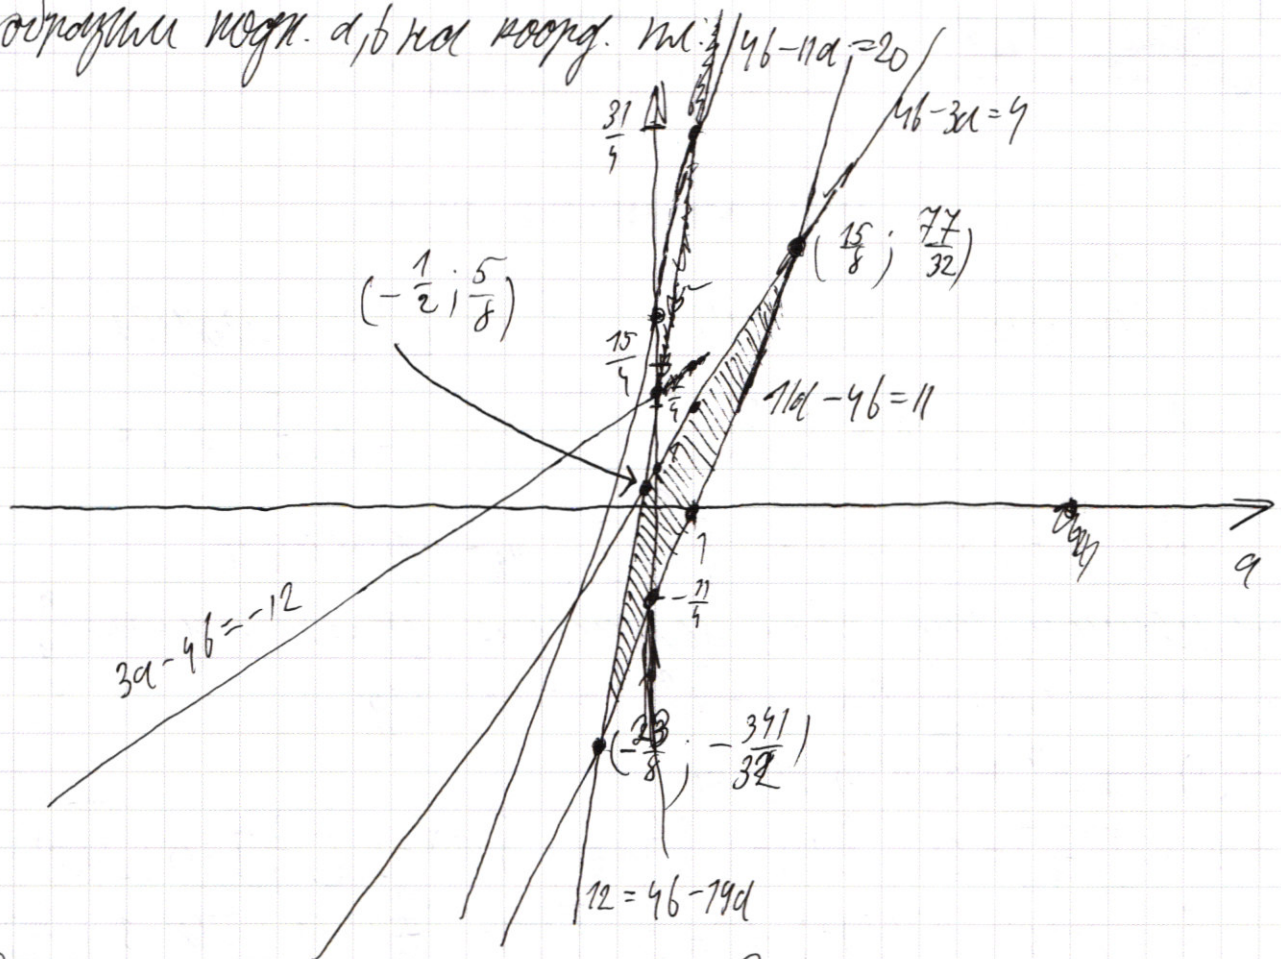 образим подх. a, b на коорд. пл.:
4b-11a=20
4b-3a=4
31/4
(15/8; 77/32)
(-1/2; 5/8)
15/4
11a-4b=11
1
a
-11/4
3a-4b=-12
(-23/8; -341/32)
12=4b-19a